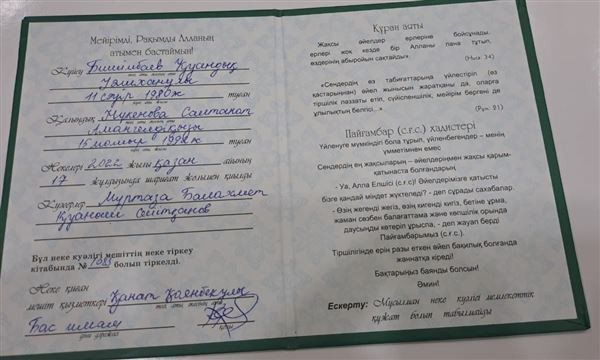 Мейірімді, Рақымды Алланың
атымен бастаймын!
Күйеу Бишімбаев Қуандық
аты-жөні, әкесінің аты
Уәлиханұлы
11 сәуір 1980ж туған
Қалыңдық Нүкенова Салтанат
аты-жөні, әкесінің аты
Амангелдіқызы
15 шілдеде 19 туған
Некелері 2022 жылы қазан айының
17 жұлдызында шариғат жолымен қиылды
Куәгерлер Муртаза Балахмет
Қуаныш Сейтжанов
Бұл неке куәлігі мешіттің неке тіркеу
кітабында № болып тіркелді.
Неке қиған
мешіт қызметкері Қанат Қаянбекұлы
Бас имам
қолы
Құран аяты
Жақсы әйелдер ерлеріне бойсұнады,
ерлері жоқ кезде бір Алланы пана тұтып,
өздерінің абыройын сақтайды».
(Ниса: 34)
«Сендердің өз табиғаттарыңа үйлестіріп (өз
қастарыңнан) әйел жынысын жаратқаны да, оларға
тіршілік ләззаты етіп, сүйіспеншілік, мейірім бергені де
ұлылықтың белгісі...».
(Рум: 21)
Пайғамбар (с.ғ.с.) хадистері
Үйленуге мүмкіндігі бола тұрып, үйленбегендер – менің
үмметімнен емес
Сендердің ең жақсыларың – әйелдерімен жақсы қарым-
қатынаста болғандарың
- Уа, Алла Елшісі (с.ғ.с)! Әйелдерімізге қатысты
бізге қандай міндет жүктеледі? - деп сұрады сахабалар.
- Өзің жегенді жегіз, өзің кигенді кигіз, бетіне ұрма,
жаман сөзбен балағаттама және көпшілік орында
даусыңды көтеріп ұрыспа, - деп жауап берді
Пайғамбарымыз (с.ғ.с).
Тіршілігінде ерін разы еткен әйел бақилық болғанда
жаннатқа кіреді!
Бақтарыңыз баянды болсын!
Әмин!
Ескерту: Мұсылман неке куәлігі мемлекеттік
құжат болып табылмайды